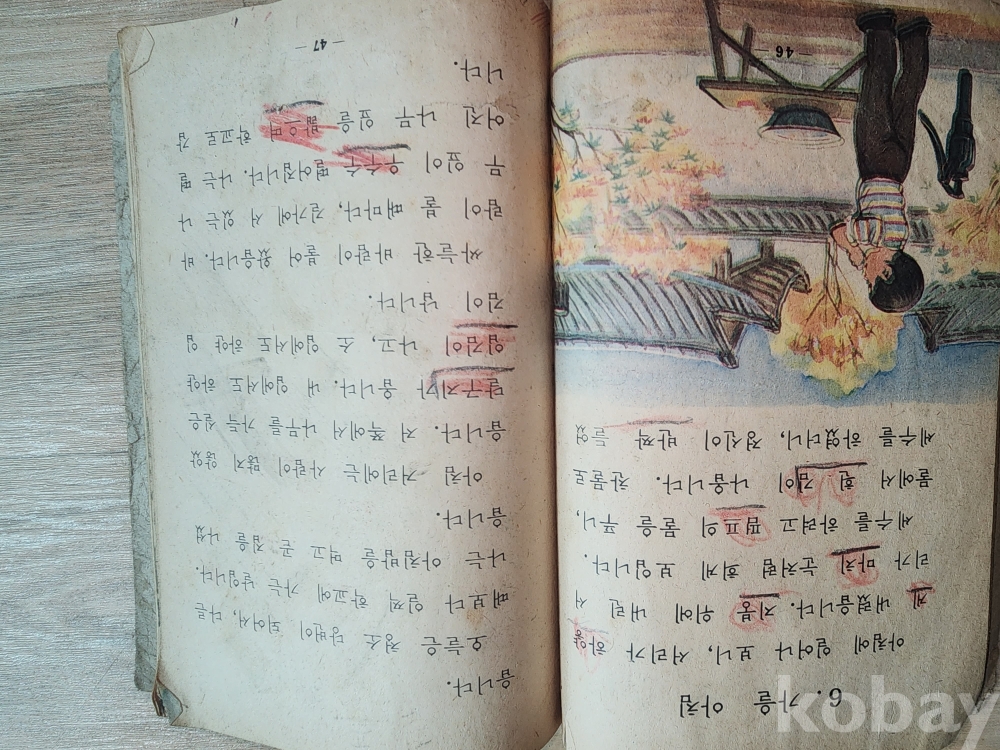 6. 가을 아침
아침에 일어나 보니, 서리가 하얗
게 내렸읍니다. 지붕 위에 내린 서
리가 마치 눈처럼 희게 보입니다.
세수를 하려고 펌프의 물을 푸니,
물에서 흰 김이 나옵니다. 찬 물로
세수를 하였더니, 정신이 반짝 들었
— 46 —
읍니다.
오늘은 청소 당번이 되어서, 다른
때보다 일찍 학교에 가는 날입니다.
나는 아침밥을 먹고 곧 집을 나섰
읍니다.
아침 거리에는 사람이 많지 않았
읍니다. 저 쪽에서 나무를 가득 실은
달구지가 옵니다. 내 입에서도 하얀
입김이 나고, 소 입에서도 하얀 입
김이 납니다.
싸늘한 바람이 불어 왔읍니다. 바
람이 불 때마다, 길가에 서 있는 나
무 잎이 우수수 떨어집니다. 나는 떨
어진 나무 잎을 밟으며 학교로 갑
니다.
— 47 —
kobay